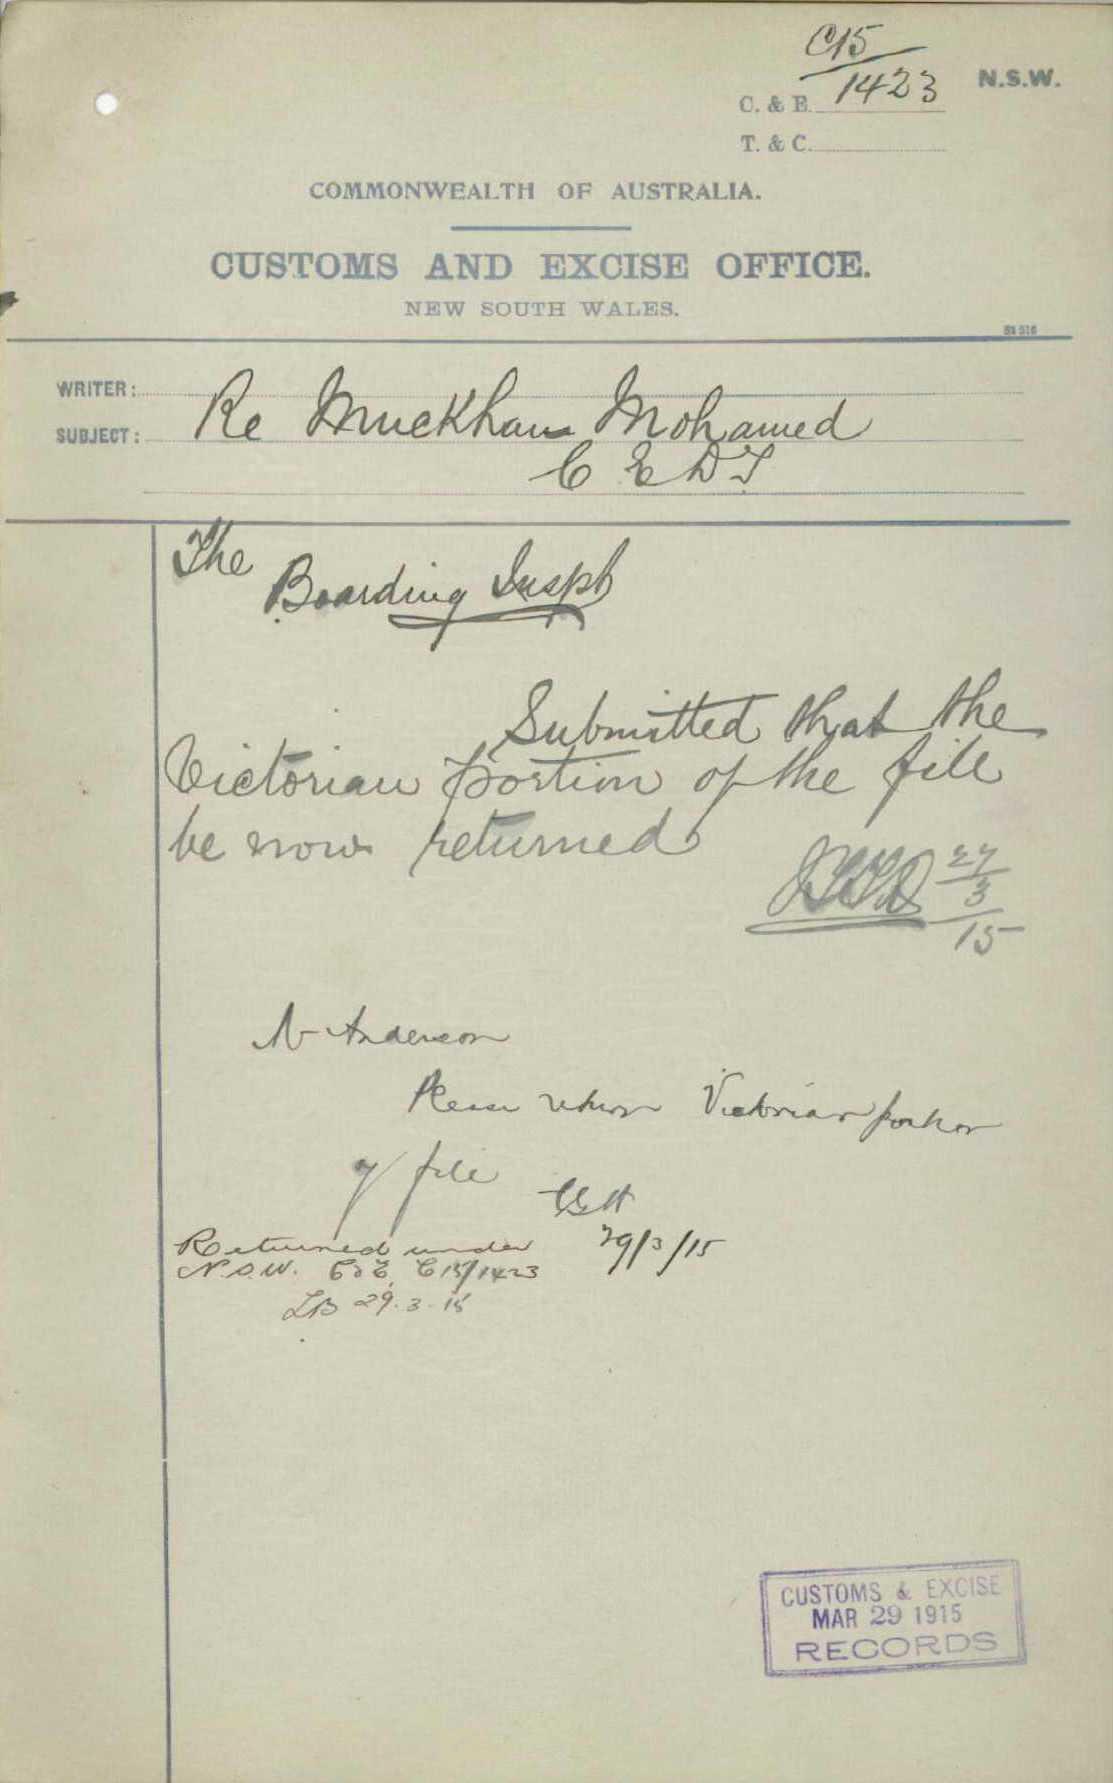 C15
1423
N.S.W.
C. & E.
T. & C.
COMMONWEALTH OF AUSTRALIA.
CUSTOMS AND EXCISE OFFICE.
NEW SOUTH WALES.
WRITER:
SUBJECT: Re Muckhan Mohamed
C E D T
The
Boarding Inspr
Submitted that the
Victorian portion of the file
be now returned
27
3
15
Mr Anderson
Please return Victorian portion
of file
29/3/15
Returned under
N.S.W. C & E. C15/1423
29.3.15
CUSTOMS & EXCISE
MAR 29 1915
RECORDS